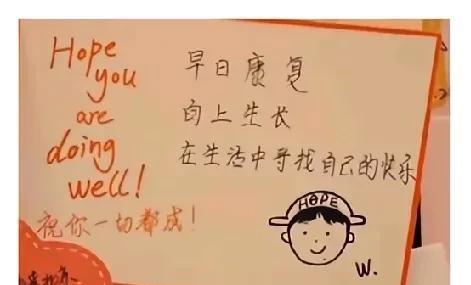 Hope
you
are
doing
well!
祝你一切都成!
早日康复
向上生长
在生活中寻找自己的快乐
HOPE
W.